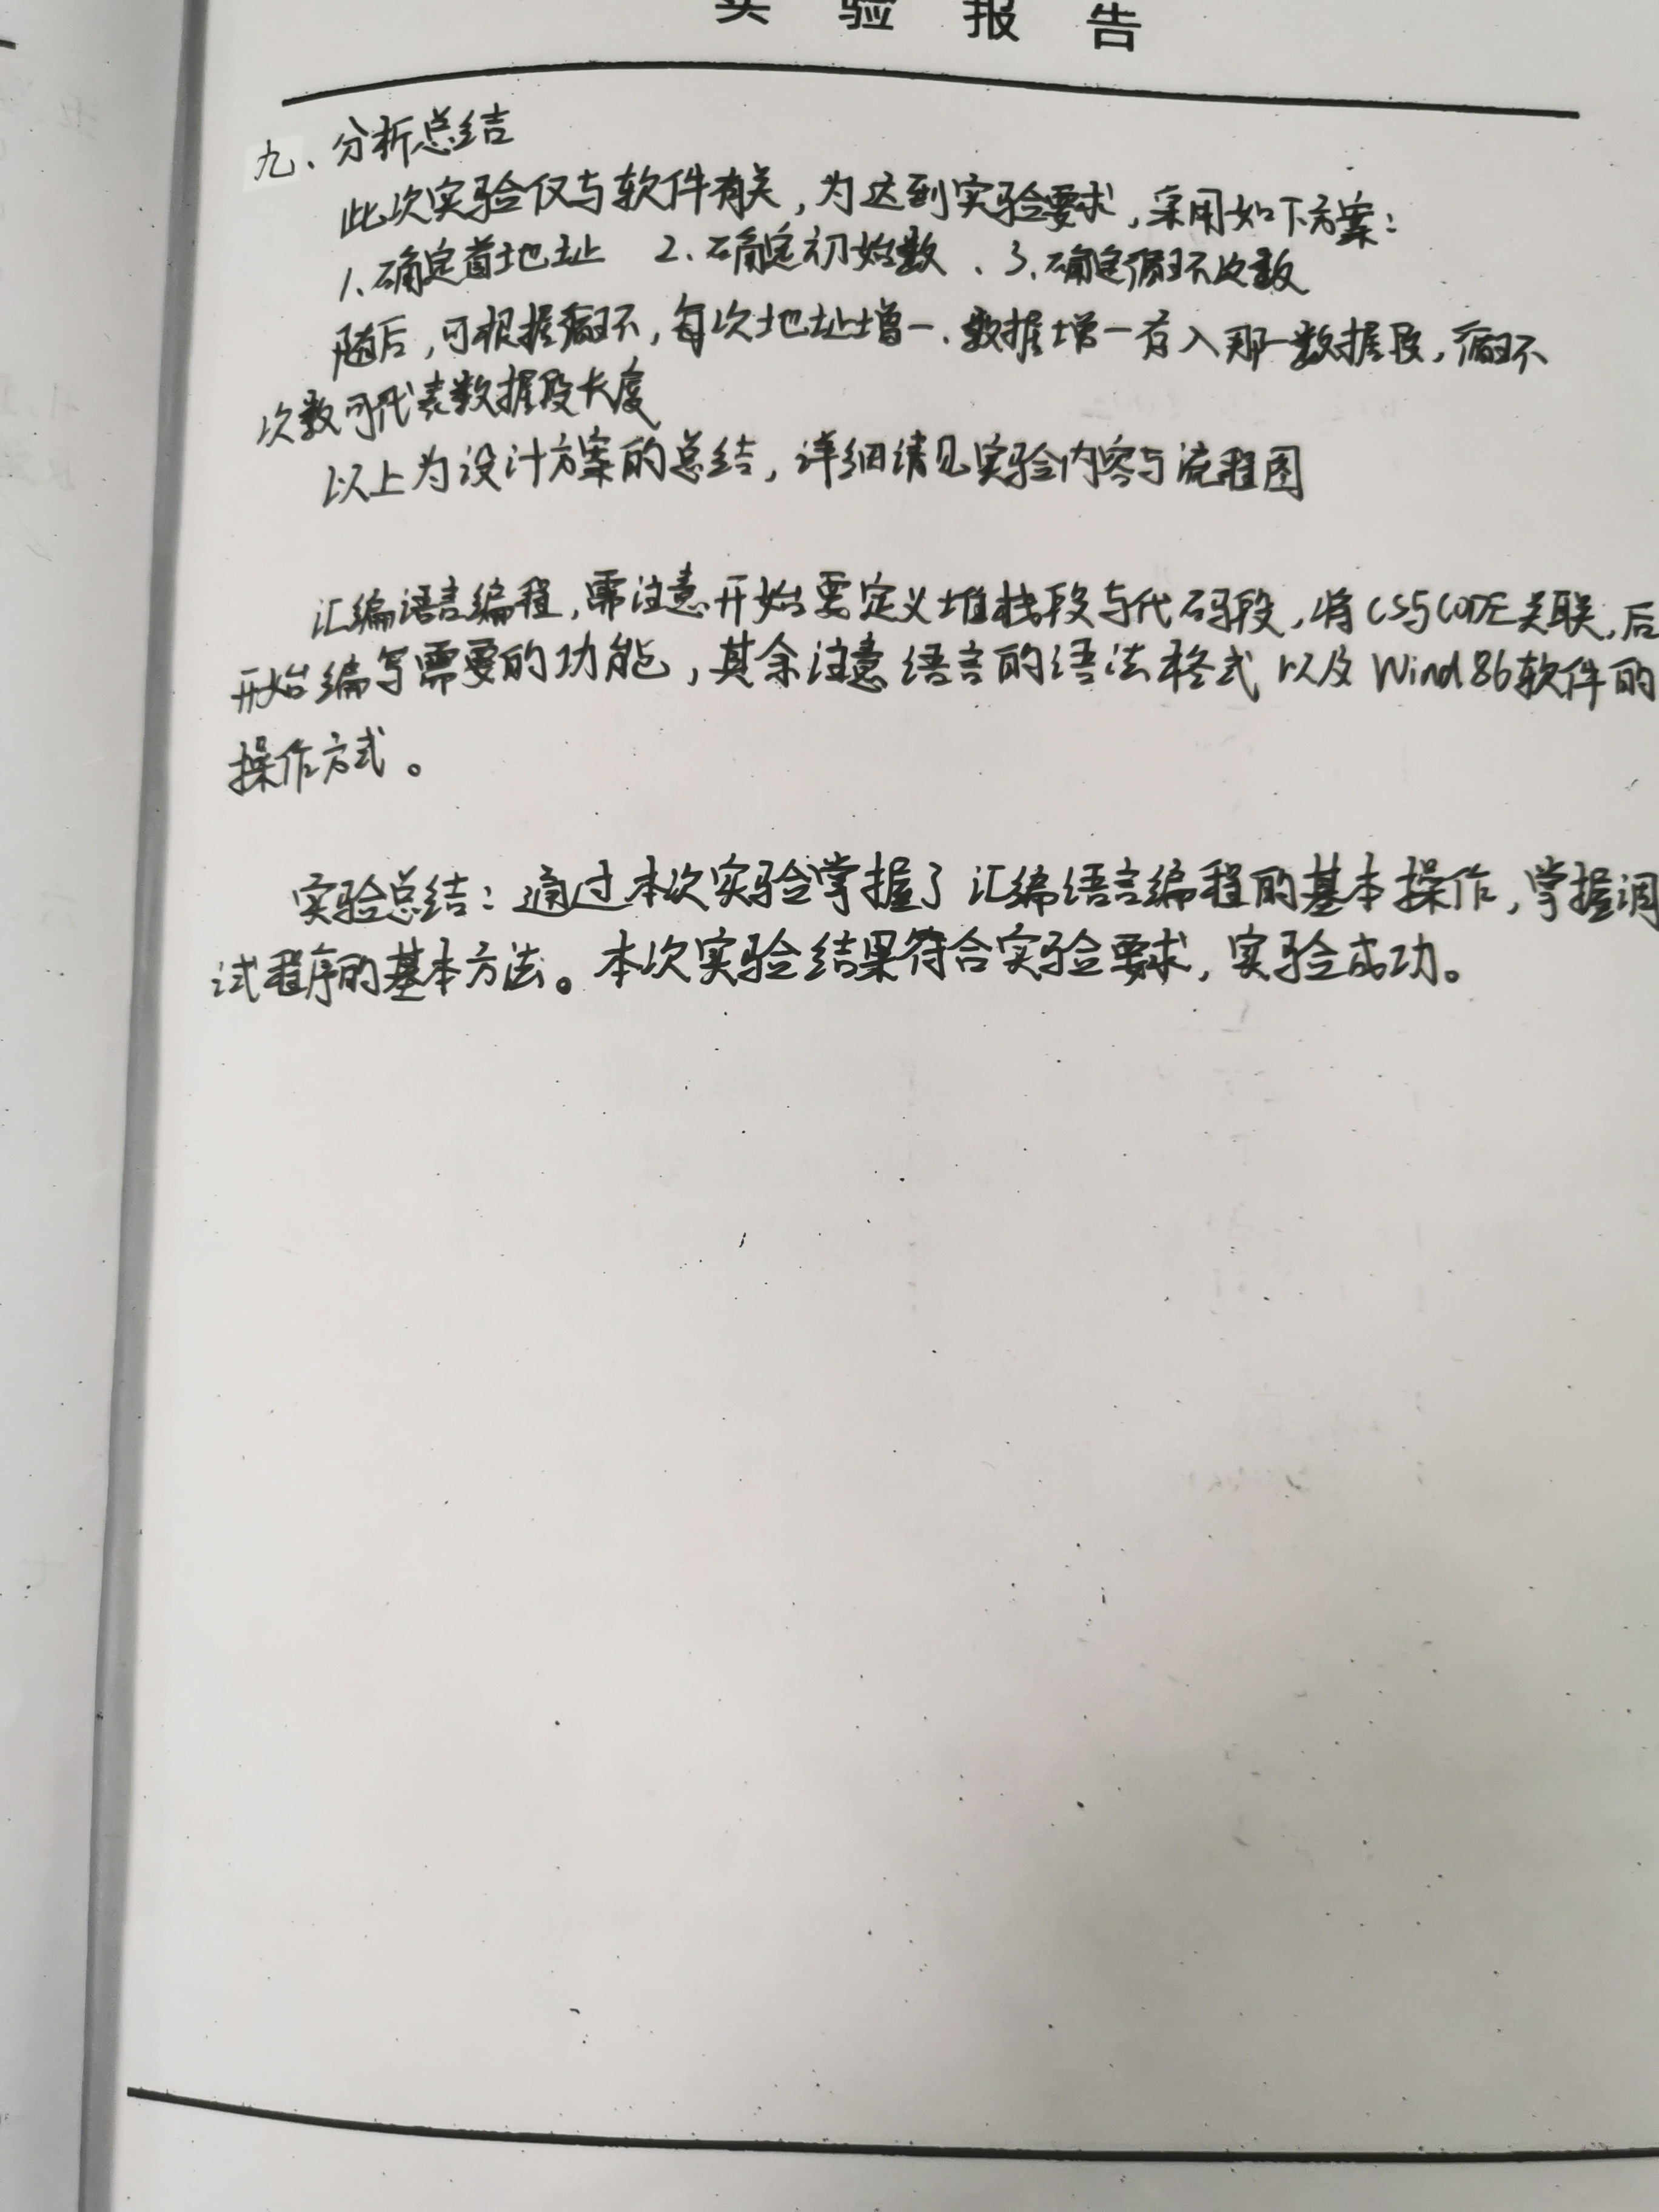 实验报告
九、分析总结
此次实验仅与软件有关,为达到实验要求,采用如下方案:
1.确定首地址 2.确定初始数、3.确定循环次数
随后,可根据循环,每次地址增一、数据增一存入那一数据段,循环
次数可代表数据段长度
以上为设计方案的总结,详细请见实验内容与流程图
汇编语言编程,需注意开始要定义堆栈段与代码段,将CS与CODE关联,后
开始编写需要的功能,其余注意语言的语法格式以及Wind86软件的
操作方式。
实验总结:通过本次实验掌握了汇编语言编程的基本操作,掌握调
试程序的基本方法。本次实验结果符合实验要求,实验成功。